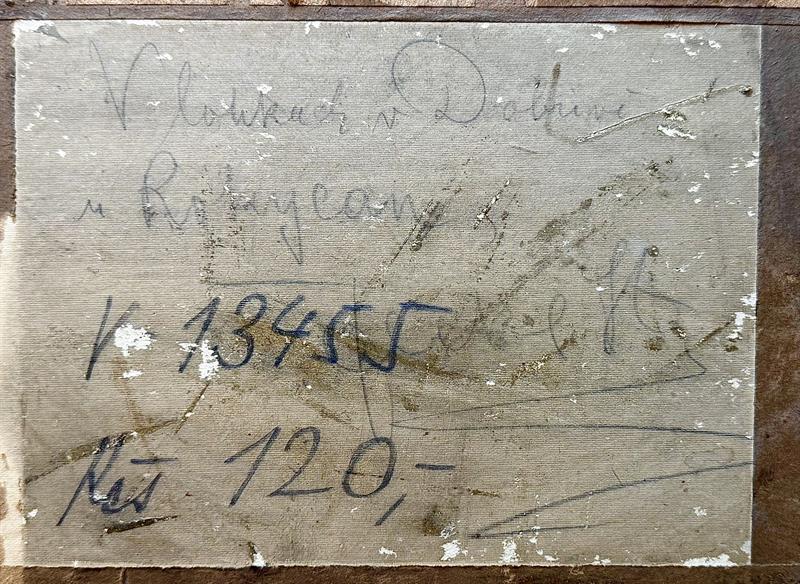 V loukách v Dobřívě
u Rokycan
V 13455
Kčs 120,-